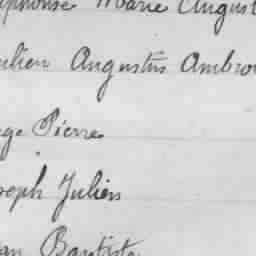 Alphonse Marie August
ulien Augustin Ambroi
ge Pierre
seph Julien
an Baptiste